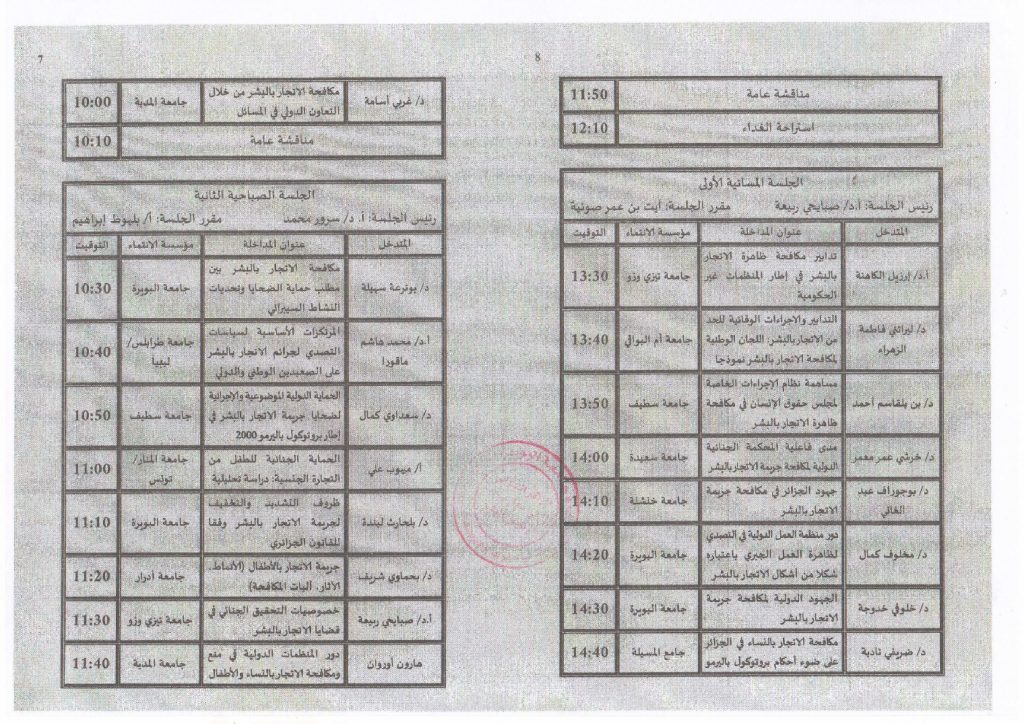 7
د/ غربي أسامة
مكافحة الاتجار بالبشر من خلال
التعاون الدولي في المسائل
جامعة المدية
10:00
مناقشة عامة
10:10
الجلسة الصباحية الثانية
رئيس الجلسة: أ. د/ سرور محمد
مقرر الجلسة: أ/ بليوط إبراهيم
المتدخل
عنوان المداخلة
مؤسسة الانتماء
التوقيت
د/ بوترعة سهيلة
مكافحة الاتجار بالبشر بين
مطلب حماية الضحايا وتحديات
النشاط السيبراني
جامعة البويرة
10:30
أ.د/ محمد هاشم
ماقورا
المرتكزات الأساسية لسياسات
التصدي لجرائم الاتجار بالبشر
على الصعيدين الوطني والدولي
جامعة طرابلس/
ليبيا
10:40
د/ سعداوي كمال
الحماية الدولية الموضوعية والإجرائية
لضحايا جريمة الاتجار بالبشر في
إطار بروتوكول باليرمو 2000
جامعة سطيف
10:50
أ/ ميهوب علي
الحماية الجنائية للطفل من
التجارة الجنسية: دراسة تحليلية
جامعة المنار/
تونس
11:00
د/ بلحارث ليندة
ظروف التشديد والتخفيف
لجريمة الاتجار بالبشر وفقا
للقانون الجزائري
جامعة البويرة
11:10
د/ بحماوي شريف
جريمة الاتجار بالأطفال (الأنماط،
الآثار، آليات المكافحة)
جامعة أدرار
11:20
أ.د/ صبايحي ربيعة
خصوصيات التحقيق الجنائي في
قضايا الاتجار بالبشر
جامعة تيزي وزو
11:30
هارون أوروان
دور المنظمات الدولية في منع
ومكافحة الاتجار بالنساء والأطفال
جامعة المدية
11:40
8
مناقشة عامة
11:50
استراحة الغداء
12:10
الجلسة المسائية الأولى
رئيس الجلسة: أ.د/ صبايحي ربيعة
مقرر الجلسة: آيت بن عمر صونية
المتدخل
عنوان المداخلة
مؤسسة الانتماء
التوقيت
أ.د/ إرزيل الكاهنة
تدابير مكافحة ظاهرة الاتجار
بالبشر في إطار المنظمات غير
الحكومية
جامعة تيزي وزو
13:30
د/ ليراتني فاطمة
الزهراء
التدابير والاجراءات الوقائية للحد
من الاتجار بالبشر: اللجان الوطنية
لمكافحة الاتجار بالبشر نموذجا
جامعة أم البواقي
13:40
د/ بن بلقاسم أحمد
مساهمة نظام الإجراءات الخاصة
لمجلس حقوق الإنسان في مكافحة
ظاهرة الاتجار بالبشر
جامعة سطيف
13:50
د/ خرشي عمر معمر
مدى فاعلية المحكمة الجنائية
الدولية لمكافحة جريمة الاتجار بالبشر
جامعة سعيدة
14:00
د/ بوجوراف عبد
الغاني
جهود الجزائر في مكافحة جريمة
الاتجار بالبشر
جامعة خنشلة
14:10
د/ مخلوف كمال
دور منظمة العمل الدولية في التصدي
لظاهرة العمل الجبري باعتباره
شكلا من أشكال الاتجار بالبشر
جامعة البويرة
14:20
د/ خلوفي خدوجة
الجهود الدولية لمكافحة جريمة
الاتجار بالبشر
جامعة البويرة
14:30
د/ ضريفي نادية
مكافحة الاتجار بالنساء في الجزائر
على ضوء أحكام بروتوكول باليرمو
جامع المسيلة
14:40